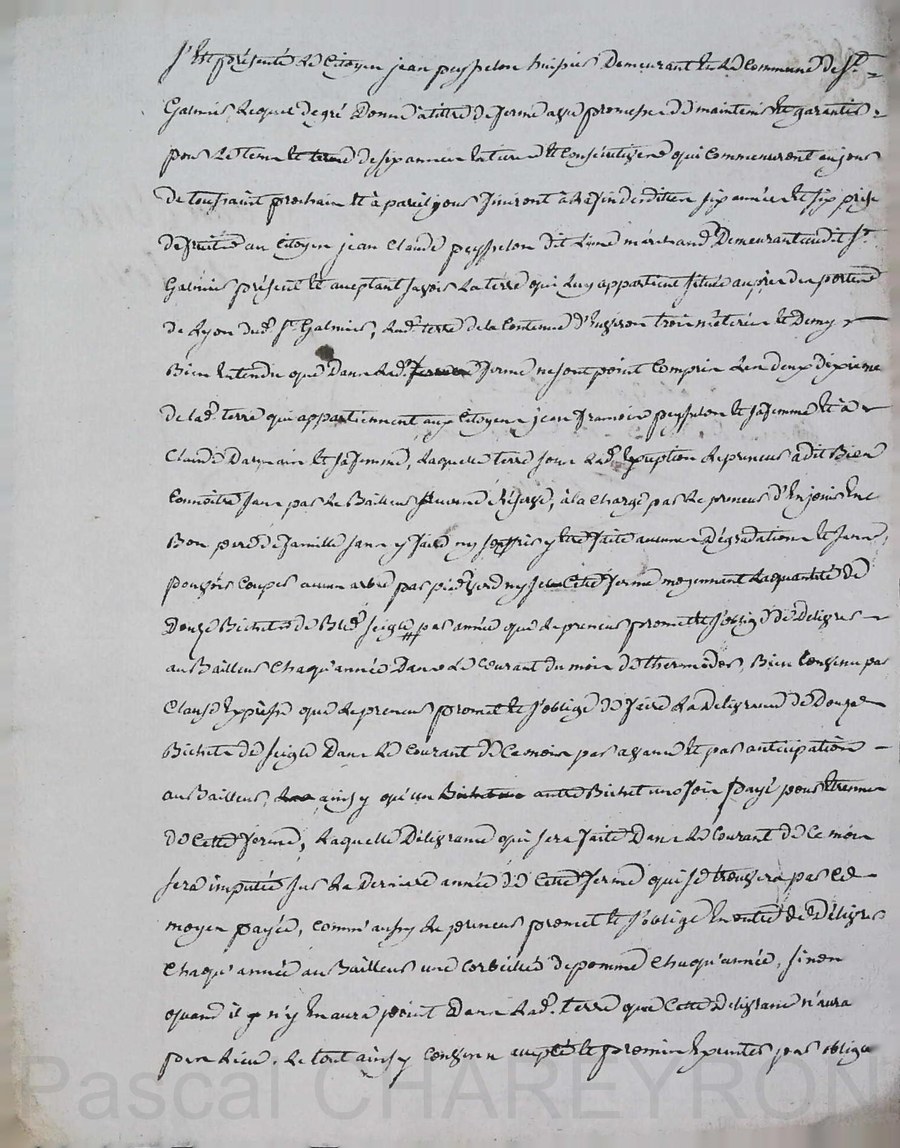 S'est présenté le Citoyen jean peysselon huissier Demeurant en la Commune de St
Galmier, lequel de gré Donne à titre de ferme avec promesse de maintenir et garantir
pour le tems et terme de six années entiere et Consécutives qui Commenceront au jour
de toussaint prochain et à pareil jour finiront à la fin desdittes six années et six prise
de fruits au Citoyen jean Claude peysselon dit marchand Demeurant audit St
Galmier présent et aceptant savoir la terre qui luy appartient située auprès du portail
de Lyon dud. St Galmier, lad. terre de la Contenue d'Environ trois méterées et Demy
Bien Entendu que Dans lad. ferme ne sont point Compris les deux dixieme
de lad. terre qui appartiennent aux Citoyens jean francois peysselon et sa femme et à
Claude Darmain et sa femme, laquelle terre sous lad. Exception le preneur a dit Bien
Connoitre sans par le Bailleur aucune réserve, à la Charge par le preneur d'En jouir En
Bon pere de famille sans y faire ny souffrir y être faite aucunes Dégradations et sans
pouvoir Couper aucun arbre par pied verd ny sec Cette ferme moyennant la quantité de
Douze Bichets de Bled seigle par année que le preneur promet et s'oblige de Délivrer
au Bailleur Chaqu'année Dans le Courant du mois de thermidor, Bien Convenu par
Clause Expresse que le preneur promet et s'oblige de faire la Délivrance de Douze
Bichets de seigle Dans le Courant de Ce mois par avance et par anticipation
au Bailleur, ainsy qu'un Bichet une fois payé pour Etrennes
de Cette ferme, laquelle Délivrance qui sera faite Dans le Courant de Ce mois
sera imputée sur la Derniere année de Cette ferme qui se trouvera par Ce
moyen payée, Comm'aussy le preneur promet et s'oblige En outre de Délivrer
Chaqu'année au Bailleur une Corbeillée de pomme Chaqu'année, sinon
quand il n'y En aura point Dans lad. terre que Cette Délivrance n'aura
pas lieu. Le tout ainsy Convenu accepté et promis Executer par obliga
Pascal CHAREYRON